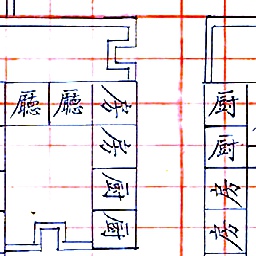 廳 廳 房
房
厨
厨
厨
厨
房
房